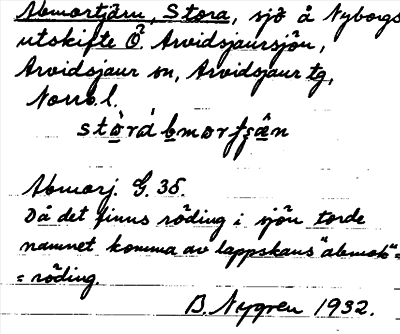 Abmortjärn, Stora, sjö å Nyborgs
utskifte Ö. Arvidsjaursjön,
Arvidsjaur sn, Arvidsjaur tg,
Norrb. l.
Abmorj. G. 36.
Då det finns röding i sjön torde
namnet komma av lappskans "abmok" =
= röding.
B. Nygren 1932.